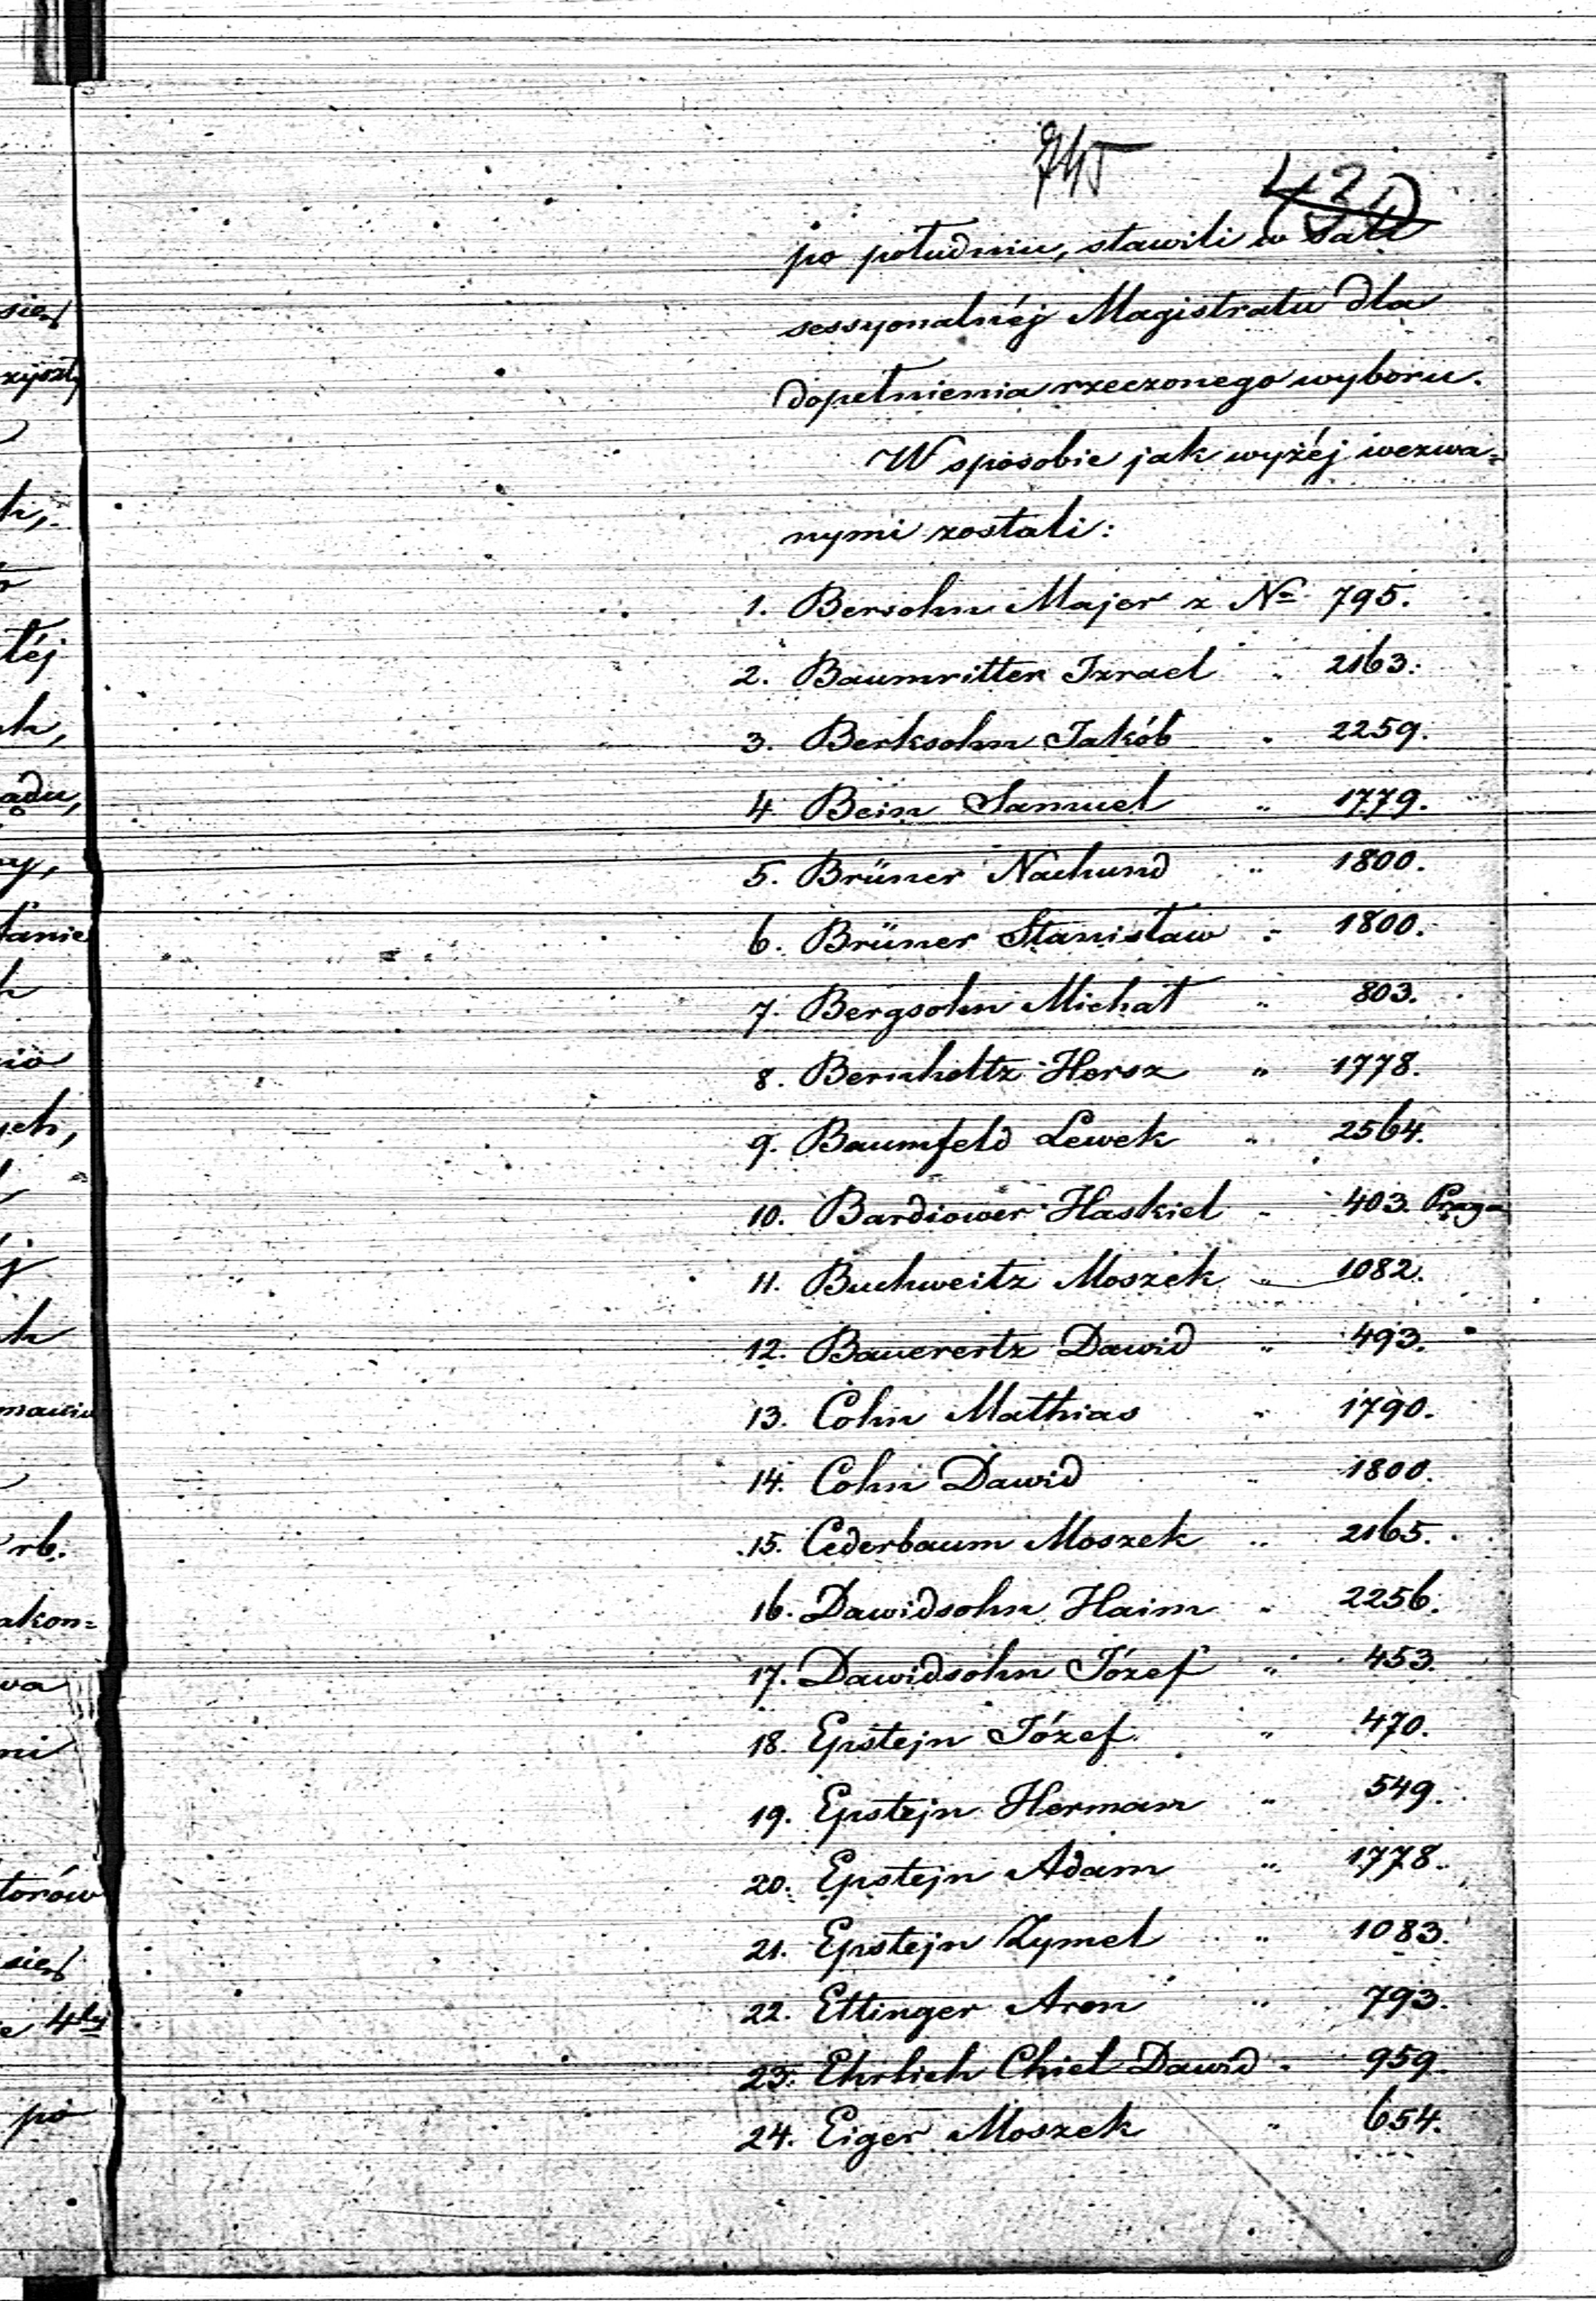 745
431
po południu, stawili w sali
sessyonalnéj Magistratu dla
dopełnienia rzeczonego wyboru.
W sposobie jak wyżéj wezwa=
nymi zostali:
1. Bersohn Majer z No 795.
2. Baumritter Izrael " 2163.
3. Berksohn Jakób " 2259.
4. Bein Samuel " 1779.
5. Brüner Nachund " 1800.
6. Brüner Stanisław " 1800.
7. Bergsohn Michał " 803.
8. Bernholtz Hersz " 1778.
9. Baumfeld Lewek " 2564.
10. Bardiower Haskiel " 403. Praga
11. Buchweitz Moszek " 1082.
12. Bauerertz Dawid " 493.
13. Cohn Mathias " 1790.
14. Cohn Dawid " 1800.
15. Cederbaum Moszek " 2165.
16. Dawidsohn Haim " 2256.
17. Dawidsohn Józef " 453.
18. Epstejn Józef " 470.
19. Epstejn Herman " 549.
20. Epstejn Adam " 1778.
21. Epstejn Zymel " 1083.
22. Ettinger Aron " 793.
23. Ehrlich Chiel Dawid " 959.
24. Eiger Moszek " 654.